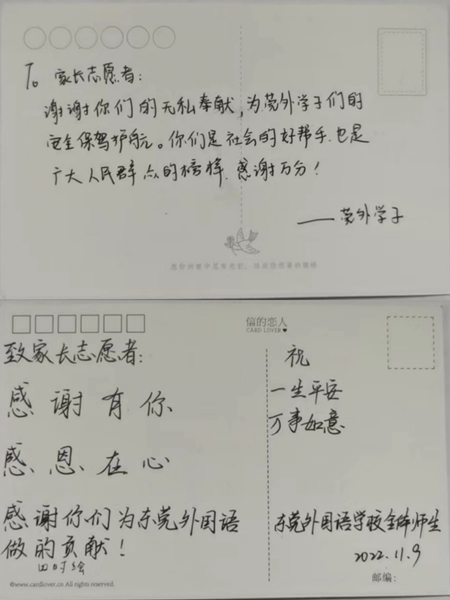 To 家长志愿者:
谢谢你们的无私奉献,为莞外学子们的
安全保驾护航。你们是社会的好帮手.也是
广大人民群众的榜样.感谢万分!
——莞外学子
信的恋人
CARD LOVER
致家长志愿者:
感谢有你
感恩在心
感谢你们为东莞外国语
做的贡献!
祝
一生平安
万事如意
东莞外国语学校全体师生
2022.11.9
邮编:
©www.cardlover.cn All rights reserved.